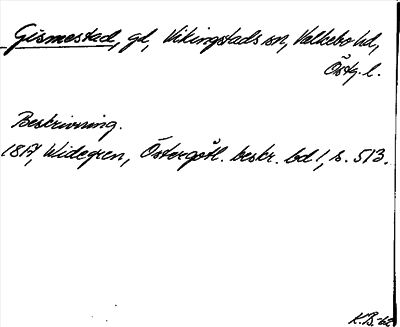 Gismestad, gd, Vikingstads sn, Valkebo hd,
Östg. l.
Beskrivning.
1817, Widegren, Östergötl. beskr. bd 1, s. 513.
K.B.-62